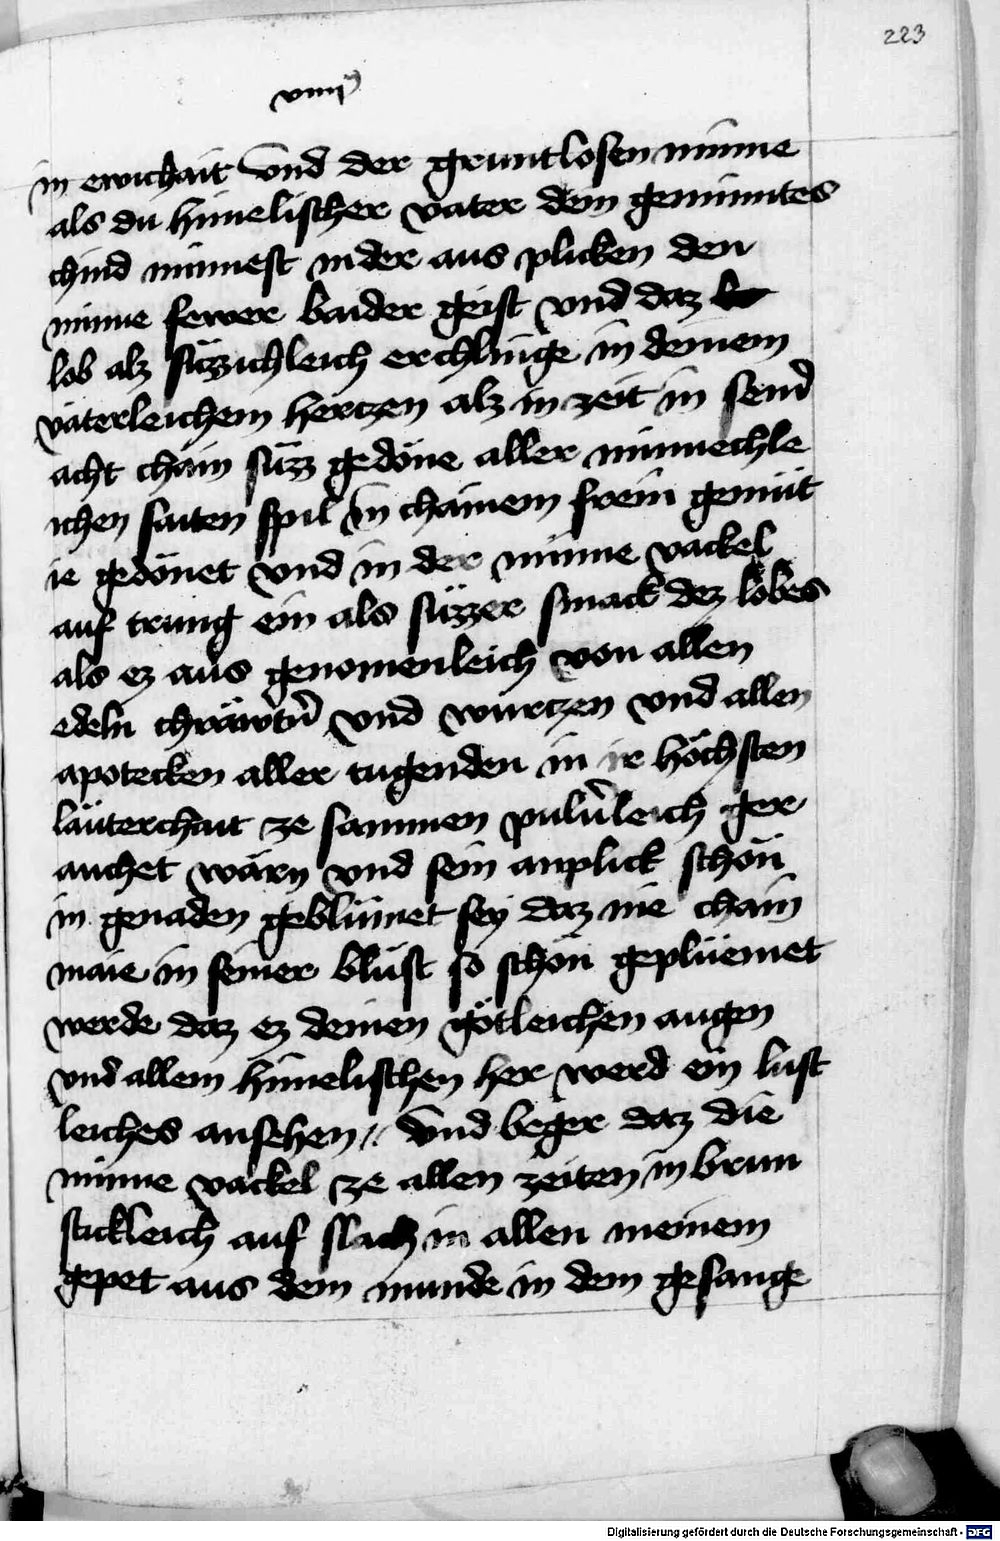 223
viiij
in ewichait Vnd der gruntlosen minne
als du himelischer vater dein geminntes
chind minnest in der aus plicken den
minne fewer baider geist vnd daz
lob alz süzzichleich erchlinge in deinem
väterleichem hertzen alz in zeit in semd
acht chain süzz gedöne aller minnechle
ichen saiten spil in chainem frein gemüt
ie gedönet vnd in der minne vackel
auf tring ein als süzzer smack dez lobes
als ez aus genomenleich von allen
edeln chräwtern vnd wurtzen vnd allen
apotecken aller tugenden in ir höchsten
läuterchait ze sammen puluerleich ger
auchet wärn vnd sein anplick schön
in genaden geblümet sey daz nie chain
maie in seiner blüst so schön geplüemet
werde daz ez deinen götleichen augen
vnd allem himelischen her werd ein lust
leiches ansehen // Vnd beger daz die
minne vackel ze allen zeiten in brun
stickleich auf slach in allen meinem
gepet aus dem munde in dem gesange
Digitalisierung gefördert durch die Deutsche Forschungsgemeinschaft - DFG